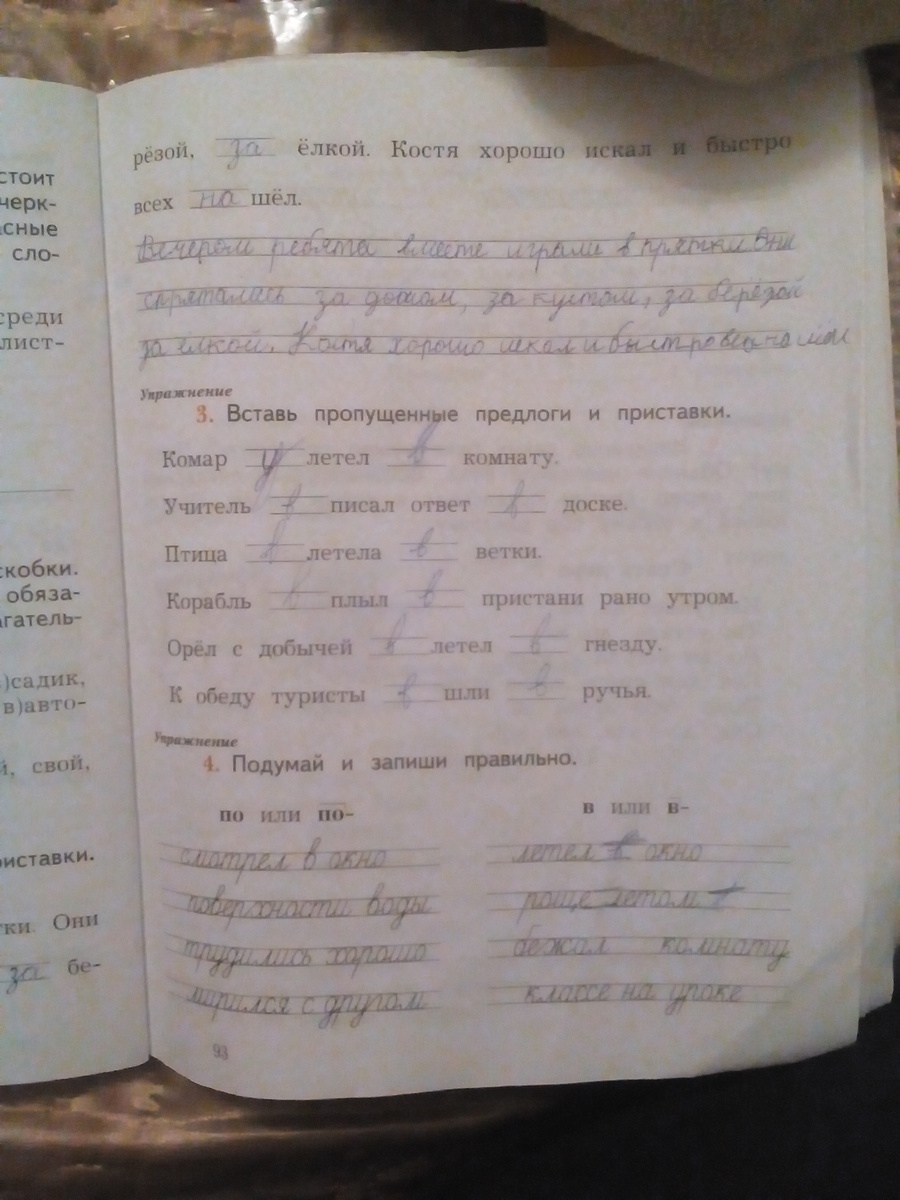 стоит
черк-
асные
сло-
среди
лист-
скобки.
обяза-
агатель-
)садик,
в)авто-
й, свой,
риставки.
тки. Они
за бе-
рёзой, за ёлкой. Костя хорошо искал и быстро
всех на шёл.
Вечером ребята вместе играли в прятки. Они
спрятались за домом, за кустом, за берёзой
за ёлкой. Костя хорошо искал и быстро всех нашёл
Упражнение
3. Вставь пропущенные предлоги и приставки.
Комар у летел в комнату.
Учитель в писал ответ в доске.
Птица в летела в ветки.
Корабль в плыл в пристани рано утром.
Орёл с добычей в летел в гнезду.
К обеду туристы в шли в ручья.
Упражнение
4. Подумай и запиши правильно.
по или по- в или в-
смотрел в окно летел в окно
поверхности воды роще летом
трудились хорошо бежал комнату
мирился с другом классе на уроке
93